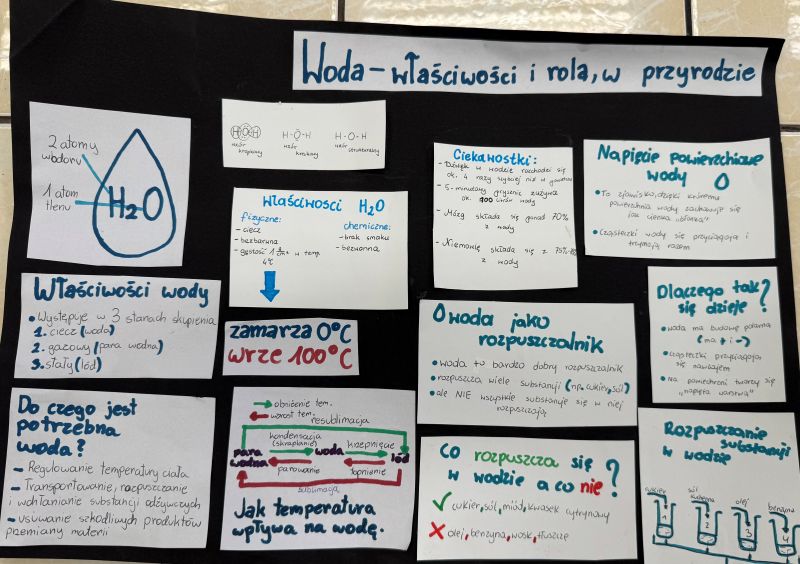 Woda - właściwości i rola, w przyrodzie
2 atomy
wodoru
1 atom
tlenu
H₂O
H O H
wzór
kropkowy
H-O-H
wzór
kreskowy
H-O-H
wzór
strukturalny
Właściwości H₂O
fizyczne:
- ciecz
- bezbarwna
- gęstość 1 w temp.
4°C
chemiczne:
- brak smaku
- bezwonna
zamarza 0°C
wrze 100°C
Właściwości wody
• Występuje w 3 stanach skupienia
1. ciecz (woda)
2. gazowy (para wodna)
3. stały (lód)
Do czego jest
potrzebna
woda?
- Regulowanie temperatury ciała
- Transportowanie, rozpuszczanie
i wchłanianie substancji odżywczych
- usuwanie szkodliwych produktów
przemiany materii
obniżenie tem.
wzrost tem.
resublimacja
kondensacja
(skraplanie)
krzepnięcie
para
wodna
woda
lód
parowanie
topnienie
sublimacja
Jak temperatura
wpływa na wodę.
Ciekawostki:
- Dźwięk w wodzie rozchodzi się
ok. 4 razy szybciej niż w powietrzu
- 5-minutowy prysznic zużywa
ok. 100 litrów wody
- Mózg składa się ponad 70%
z wody
- Niemowlę składa się z 75%
z wody
Napięcie powierzchniowe
wody
• To zjawisko, dzięki któremu
powierzchnia wody zachowuje się
jak cienka „błonka"
• Cząsteczki wody się przyciągają i
trzymają razem
Dlaczego tak
się dzieje?
• woda ma budowę polarną
(ma + i -)
• cząsteczki przyciągają
się nawzajem
• Na powierzchni tworzy się
„napięta warstwa"
O woda jako
rozpuszczalnik
• woda to bardzo dobry rozpuszczalnik
• rozpuszcza wiele substancji (np. cukier, sól)
• ale NIE wszystkie substancje się w niej
rozpuszczają
Co rozpuszcza się
w wodzie a co nie?
✓ cukier, sól, miód, kwasek cytrynowy
X olej, benzyna, wosk, tłuszcze
Rozpuszczanie
substancji
w wodzie
cukier
sól
kuchenna
olej
benzyna
1
2
3
4